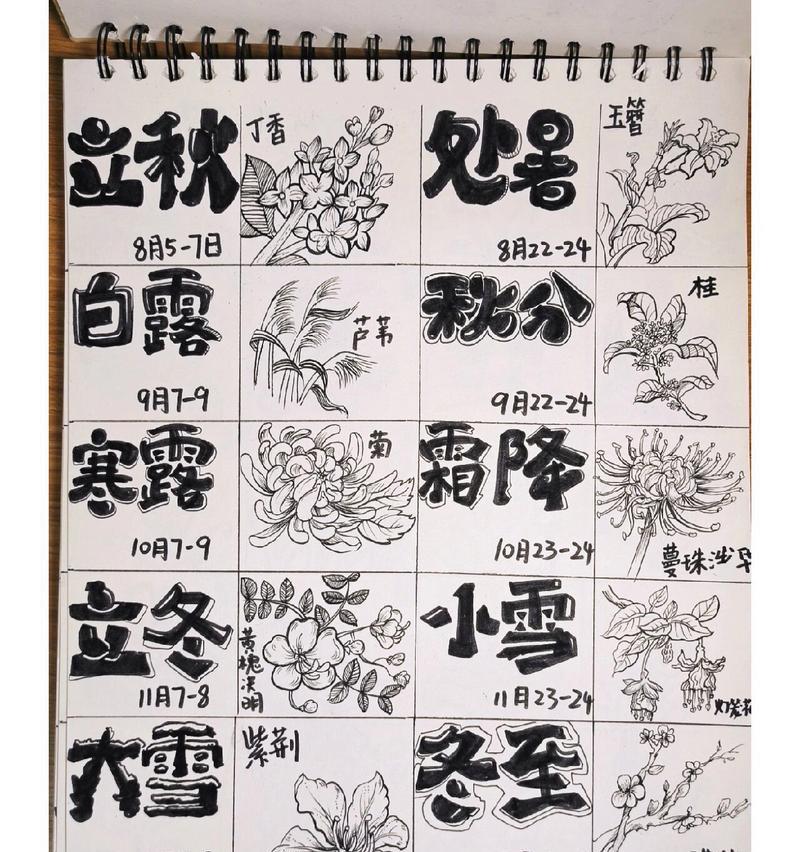 立秋
8月5-7日
丁香
处暑
8月22-24
玉簪
白露
9月7-9
芦苇
秋分
9月22-24
桂
寒露
10月7-9
菊
霜降
10月23-24
蔓珠沙
立冬
11月7-8
黄槐决明
小雪
11月23-24
大雪
紫荆
冬至